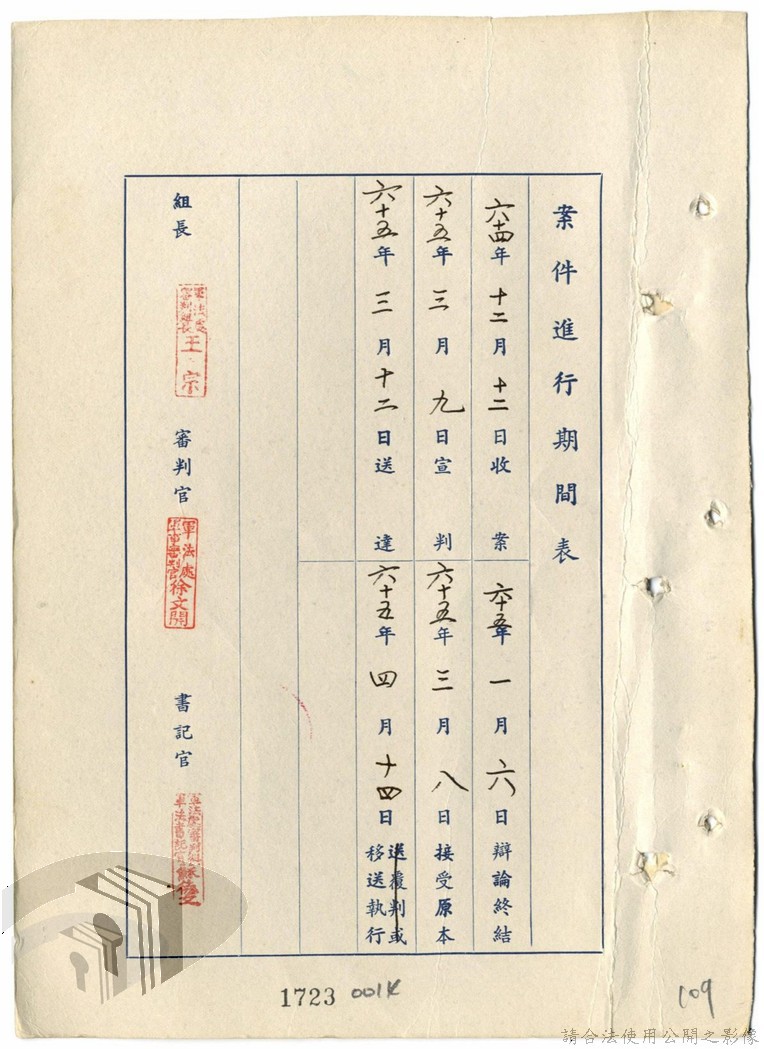 案件進行期間表
六十四年十二月十二日收案
六十五年一月六日辯論終結
六十五年三月九日宣判
六十五年三月八日接受原本
六十五年三月十二日送達
六十五年四月十四日送覆判或移送執行
組長
軍法處
審判組長
王宗
審判官
軍法處
軍事審判官
徐文開
書記官
軍法處審判組
軍法書記官
1723
001K
109
請合法使用公開之影像